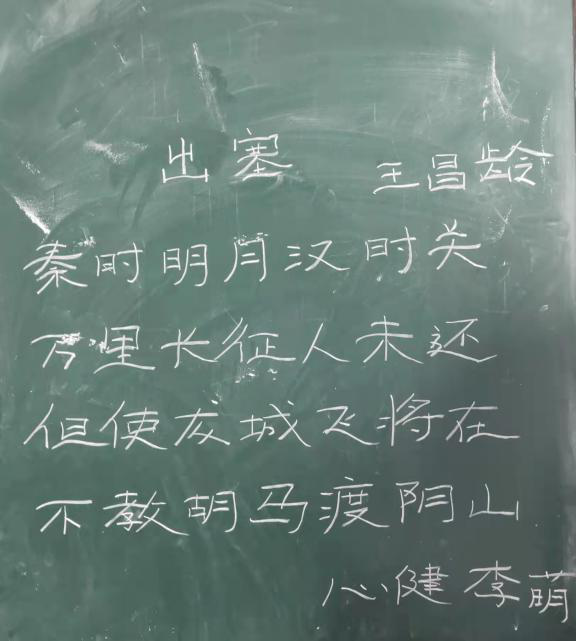 出塞 王昌龄
秦时明月汉时关
万里长征人未还
但使龙城飞将在
不教胡马渡阴山
心健 李萌